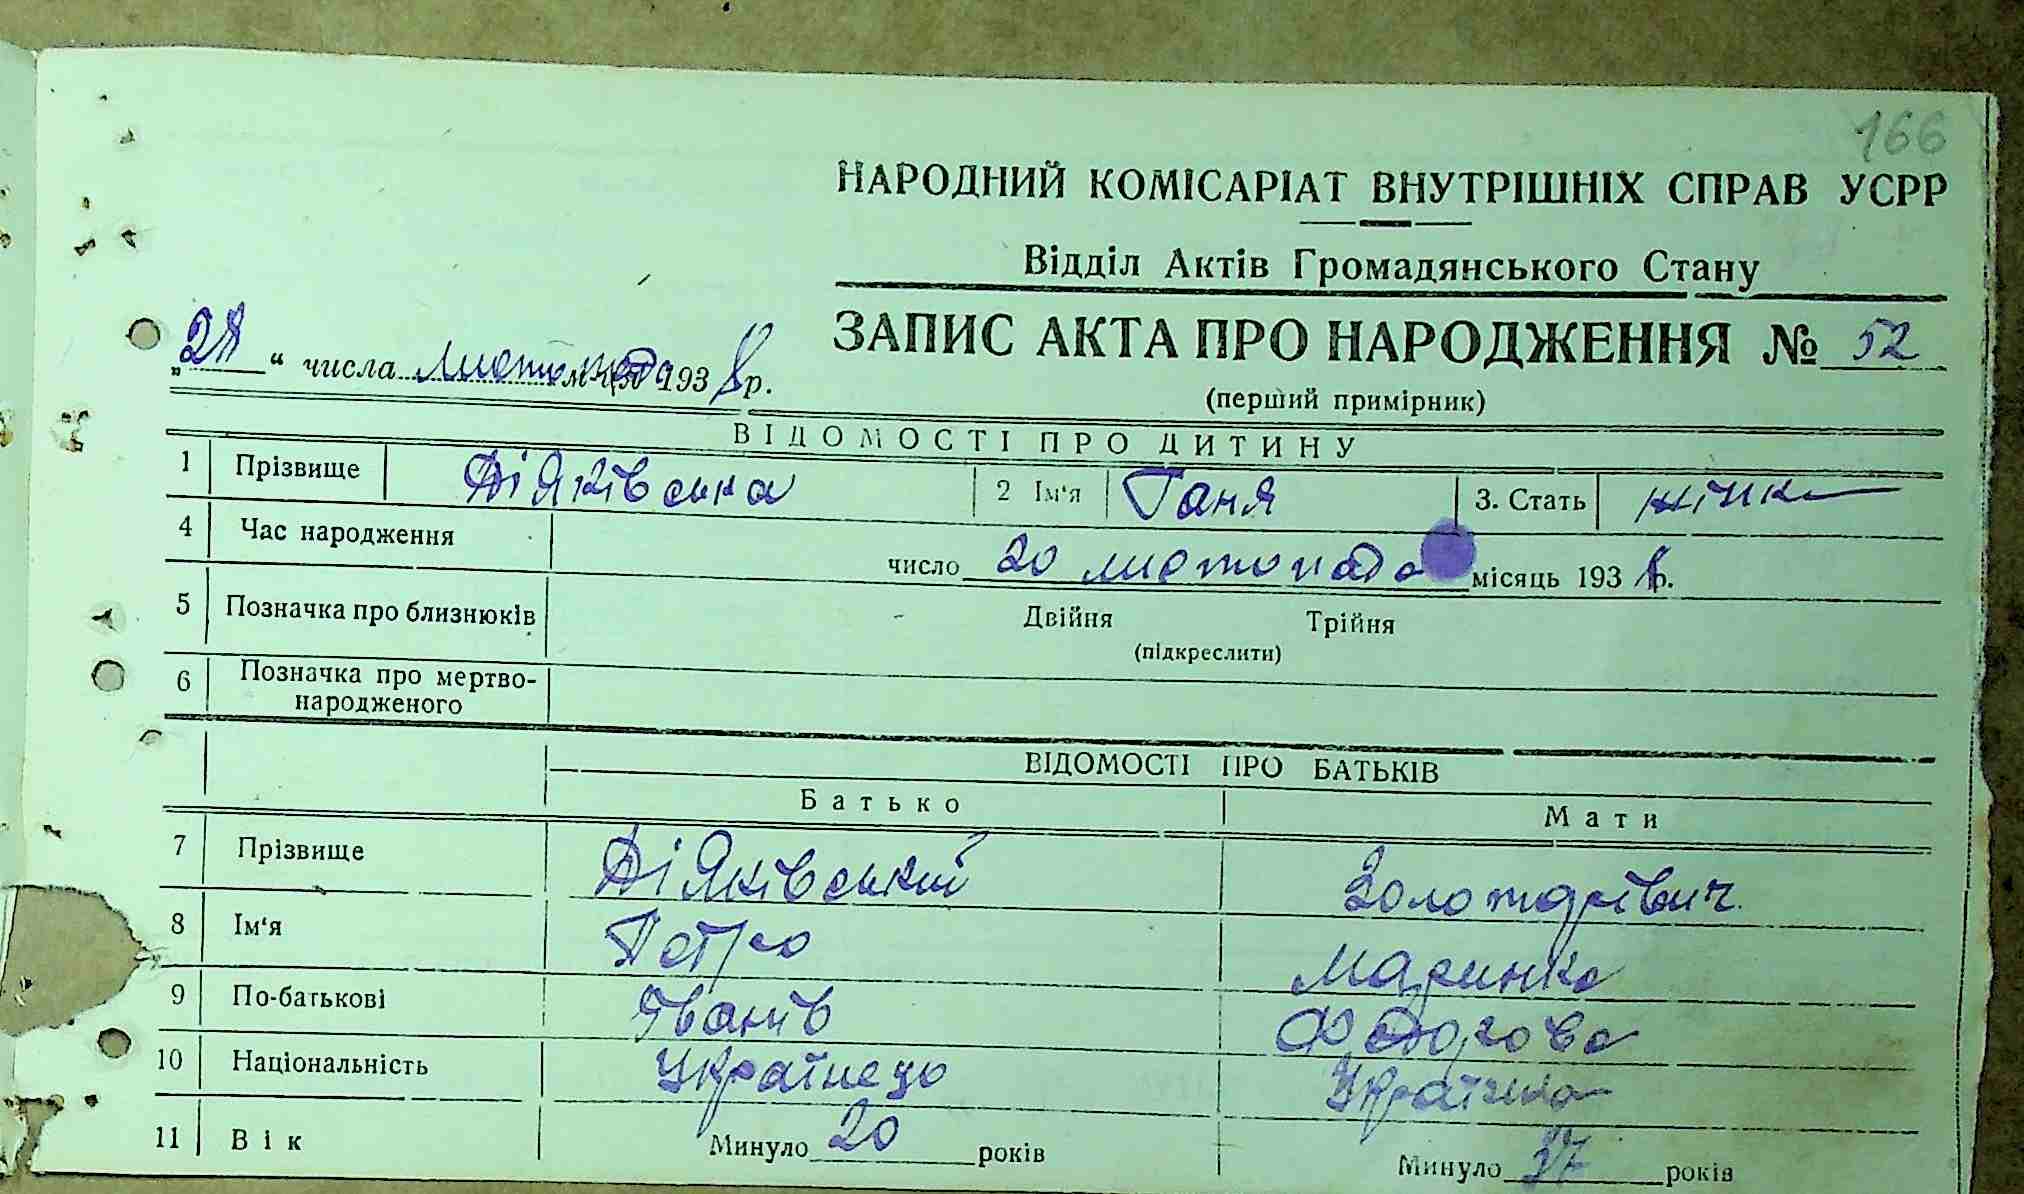 166
НАРОДНИЙ КОМІСАРІАТ ВНУТРІШНІХ СПРАВ УСРР
Відділ Актів Громадянського Стану
ЗАПИС АКТА ПРО НАРОДЖЕННЯ № 52
„28“ числа листопада 1938 р.
(перший примірник)
ВІДОМОСТІ ПРО ДИТИНУ
1 Прізвище Діяківська 2 Ім‘я Ганя 3. Стать жіноч
4 Час народження число 20 листопада місяць 1938 р.
5 Позначка про близнюків Двійня Трійня
(підкреслити)
6 Позначка про мертво-
народженого
ВІДОМОСТІ ПРО БАТЬКІВ
Батько Мати
7 Прізвище Діяківський Золотаревич
8 Ім‘я Петро Маринка
9 По-батькові Іванів Федорова
10 Національність Українець Українка
11 Вік Минуло 20 років Минуло років